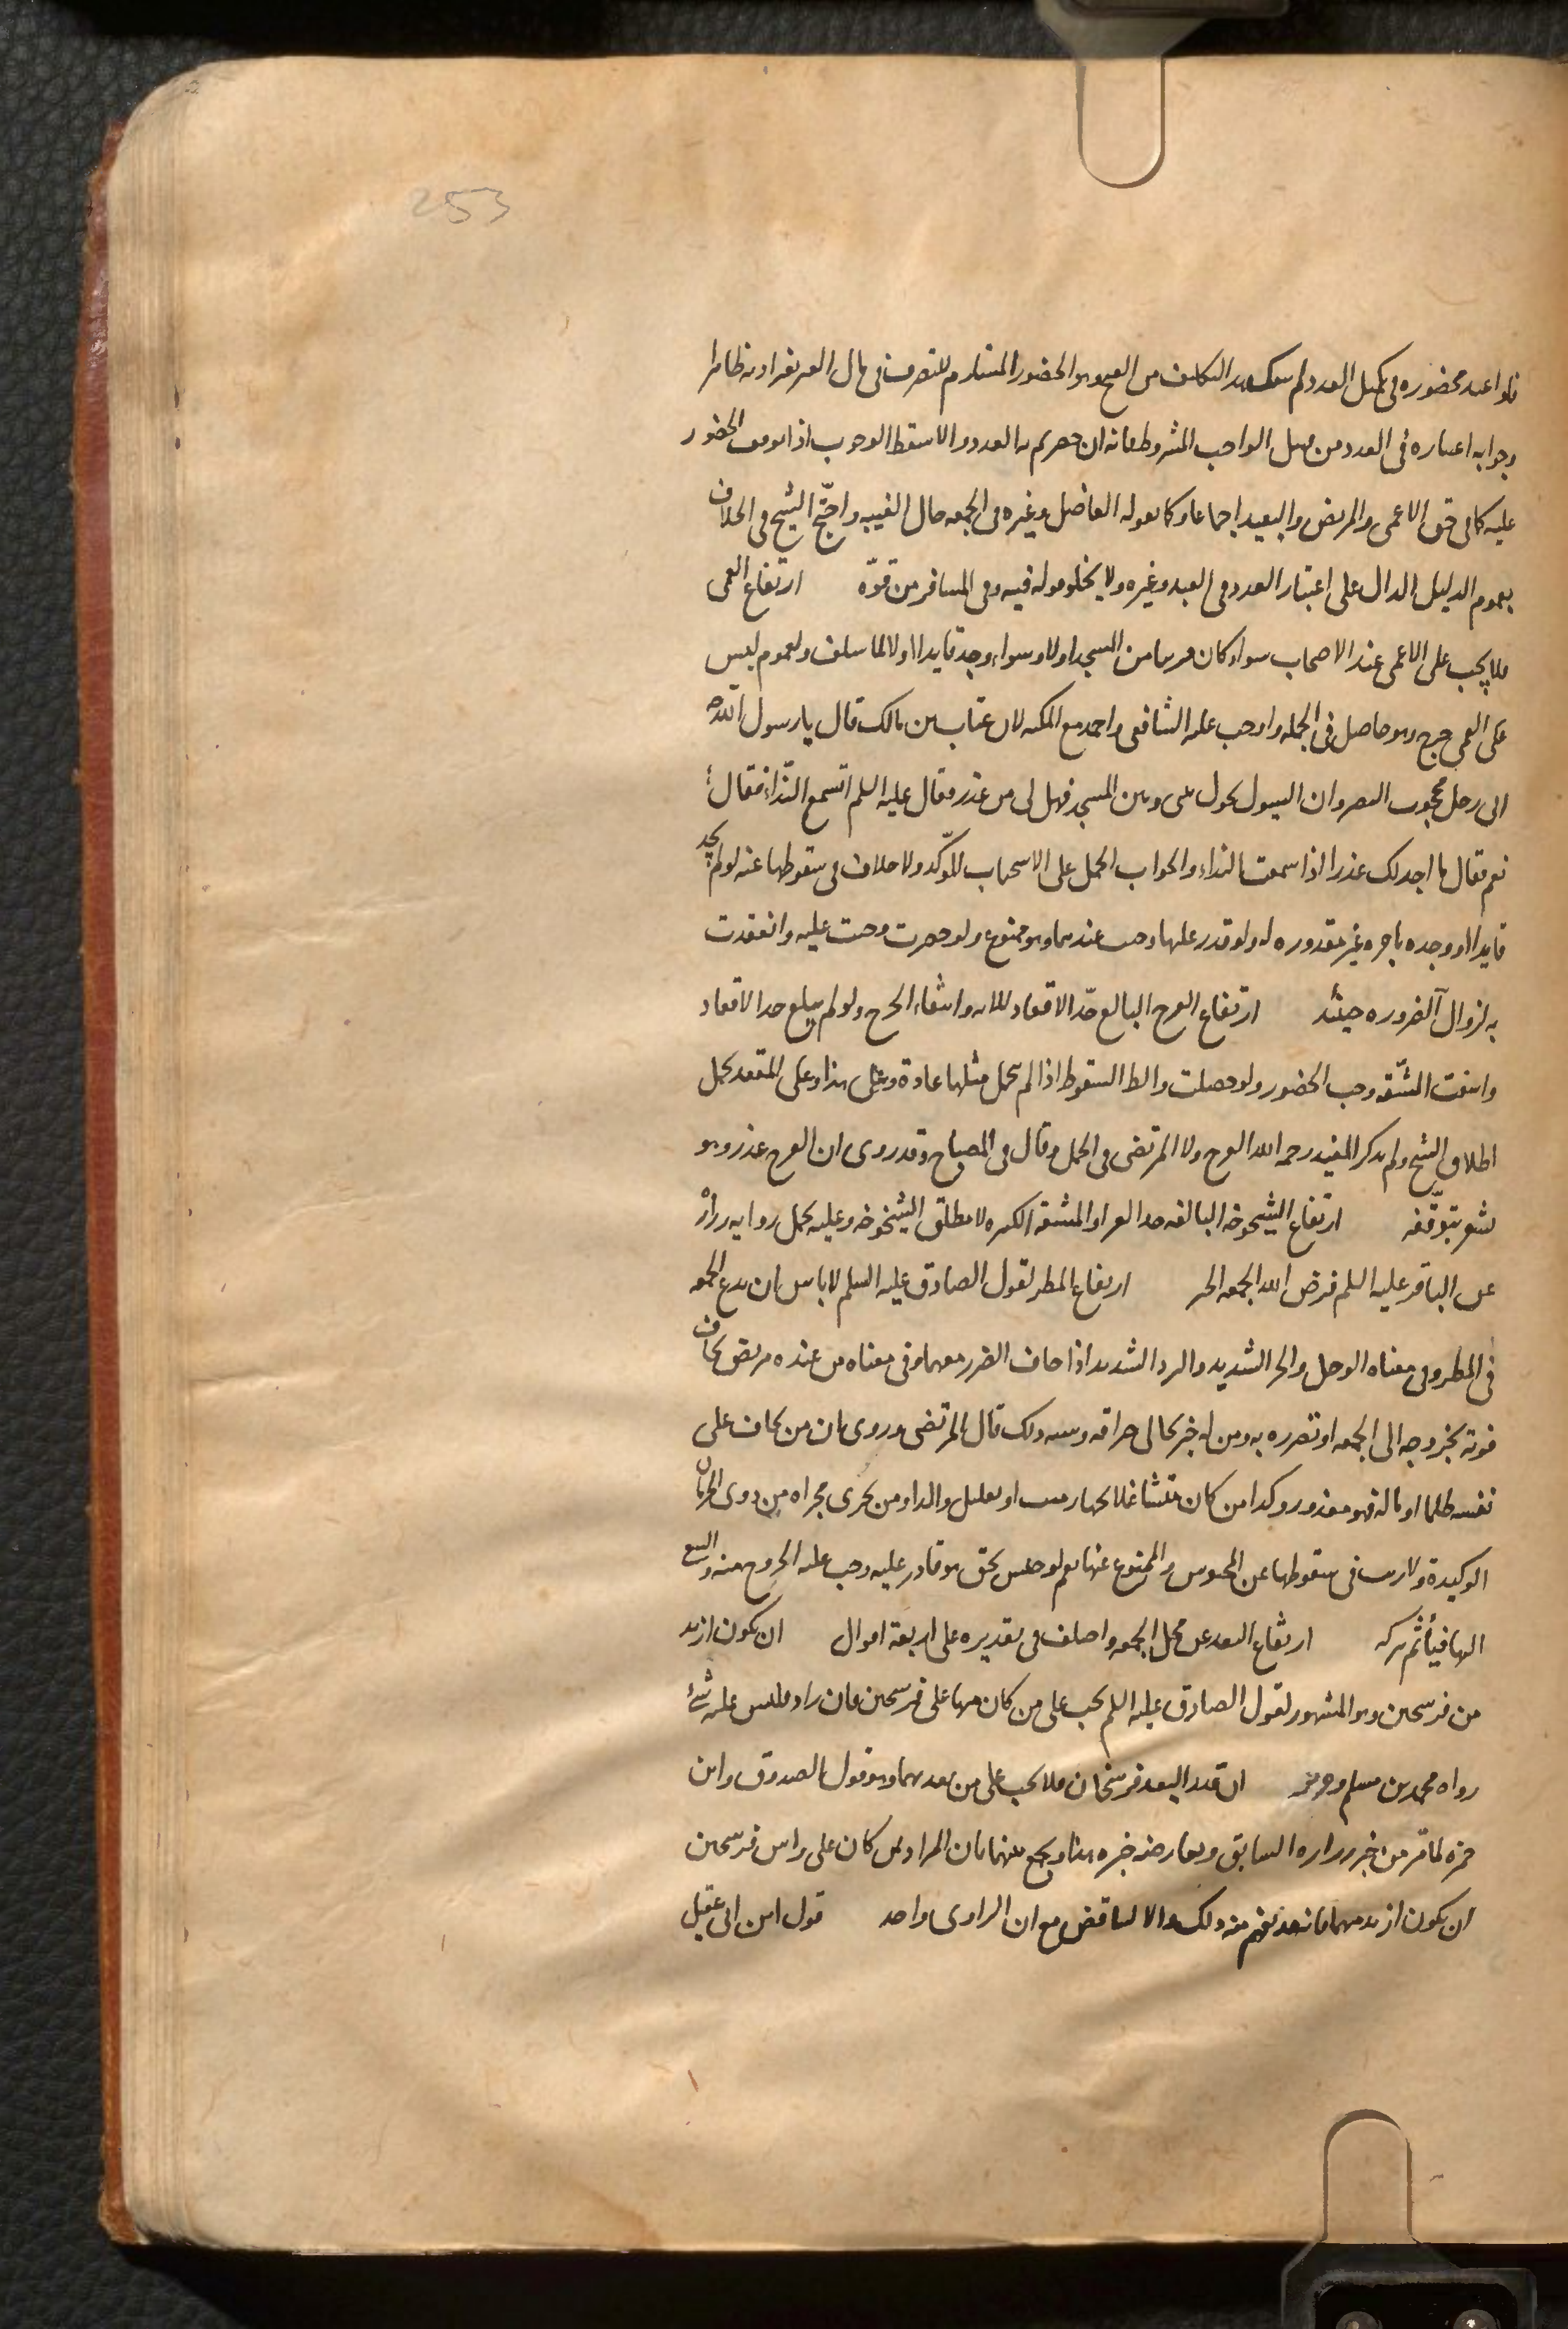 253
فلو اعتبر حضوره في تكميل العدد لم ينفك هذا التكليف من القبح وهو الحضور المستلزم للتصرف في مال الغير بغير اذنه ظاهرا
وجوابه اعتباره في العدد من قبيل الواجب المشروط بمعنى انه ان حضر تم به العدد والا سقط الوجوب اذا توقف الحضور
عليه كما في حق الاعمى والمريض والبعيد اجماعا وكما يقوله الفاضل وغيره في الجمعه حال الغيبه واحتج الشيخ في الخلاف
بعموم الدليل الدال على اعتبار العدد في العبد وغيره ولا يخلو قوله فيه وفي المسافر من قوّة ارتفاع العمى
فلا يجب على الاعمى عند الاصحاب سواء كان قريبا من المسجد او لا وسواء وجد قايدا او لا لما سلف ولعموم ليس
على العمى حرج وهو حاصل في الجمله واوجب عليه الشافعي واحمد مع المكنه لان عتاب بن مالك قال يا رسول الله
اني رجل محجوب البصر وان السيول تحول بيني وبين المسجد فهل لي من عذر فقال عليه السلم اتسمع النداء فقال
نعم فقال ما اجد لك عذرا اذا سمعت النداء والجواب الحمل على الاستحباب المؤكد ولا خلاف في سقوطها عنه لو لم يجد
قايدا او وجده باجره غير مقدوره له ولو قدر عليها وجب عندهما وهو ممنوع ولو حضرت وجبت عليه وانعقدت
به لزوال الضروره حينئذ ارتفاع العرج البالغ حدّ الاقعاد للايه وانتفاء الحرج ولو لم يبلغ حد الاقعاد
وانتفت المشقه وجب الحضور ولو حصلت فالظ السقوط اذا لم يتحمل مثلها عادة وعلى هذا وعلى المقعد يحمل
اطلاق الشيخ ولم يذكر المفيد رحمه الله العرج ولا المرتضى في الجمل وقال في المصباح وقد روى ان العرج عذر وهو
يشعر بتوقّفه ارتفاع الشيخوخه البالغه حد العجز او المشقه الكثيره لا مطلق الشيخوخه وعليه يحمل روايه زراره
عن الباقر عليه السلم فرض الله الجمعه الخبر ارتفاع المطر لقول الصادق عليه السلم لا باس ان يدع الجمعه
في المطر وفي معناه الوحل والحر الشديد والبرد الشديد اذا خاف الضرر معهما وفي معناه من عنده مريض يخاف
فوته بخروجه الى الجمعه او تضرره به ومن له خبز يخاف احتراقه وشبه ذلك قال المرتضى وروى ان من يخاف على
نفسه ظلما او ماله فهو معذور وكذا من كان متشاغلا بجهاز ميت او تعليل والد او من يجري مجراه من ذوى الحرمات
الوكيدة ولا ريب في سقوطها عن المحبوس والممنوع عنها نعم لو حبس بحق هو قادر عليه وجب عليه الخروج منه والسعي
اليها فيأثم بتركه ارتفاع البعد عن محل الجمعه واختلف في تقديره على اربعة اقوال ان يكون ازيد
من فرسخين وهو المشهور لقول الصادق عليه السلم يجب على من كان منها على فرسخين فان زاد فليس عليه شئ
رواه محمد بن مسلم وحريز ان قدر البعد فرسخان فلا يجب على من بعد بهما وهو قول الصدوق وابن
حمزه لما مر من خبر زراره السابق ويعارضه خبره هنا ويجمع بينهما بان المراد بمن كان على راس فرسخين
ان يكون ازيد منهما فانه قد يفهم منه ذلك والا لتناقض مع ان الراوى واحد قول ابن ابي عقيل